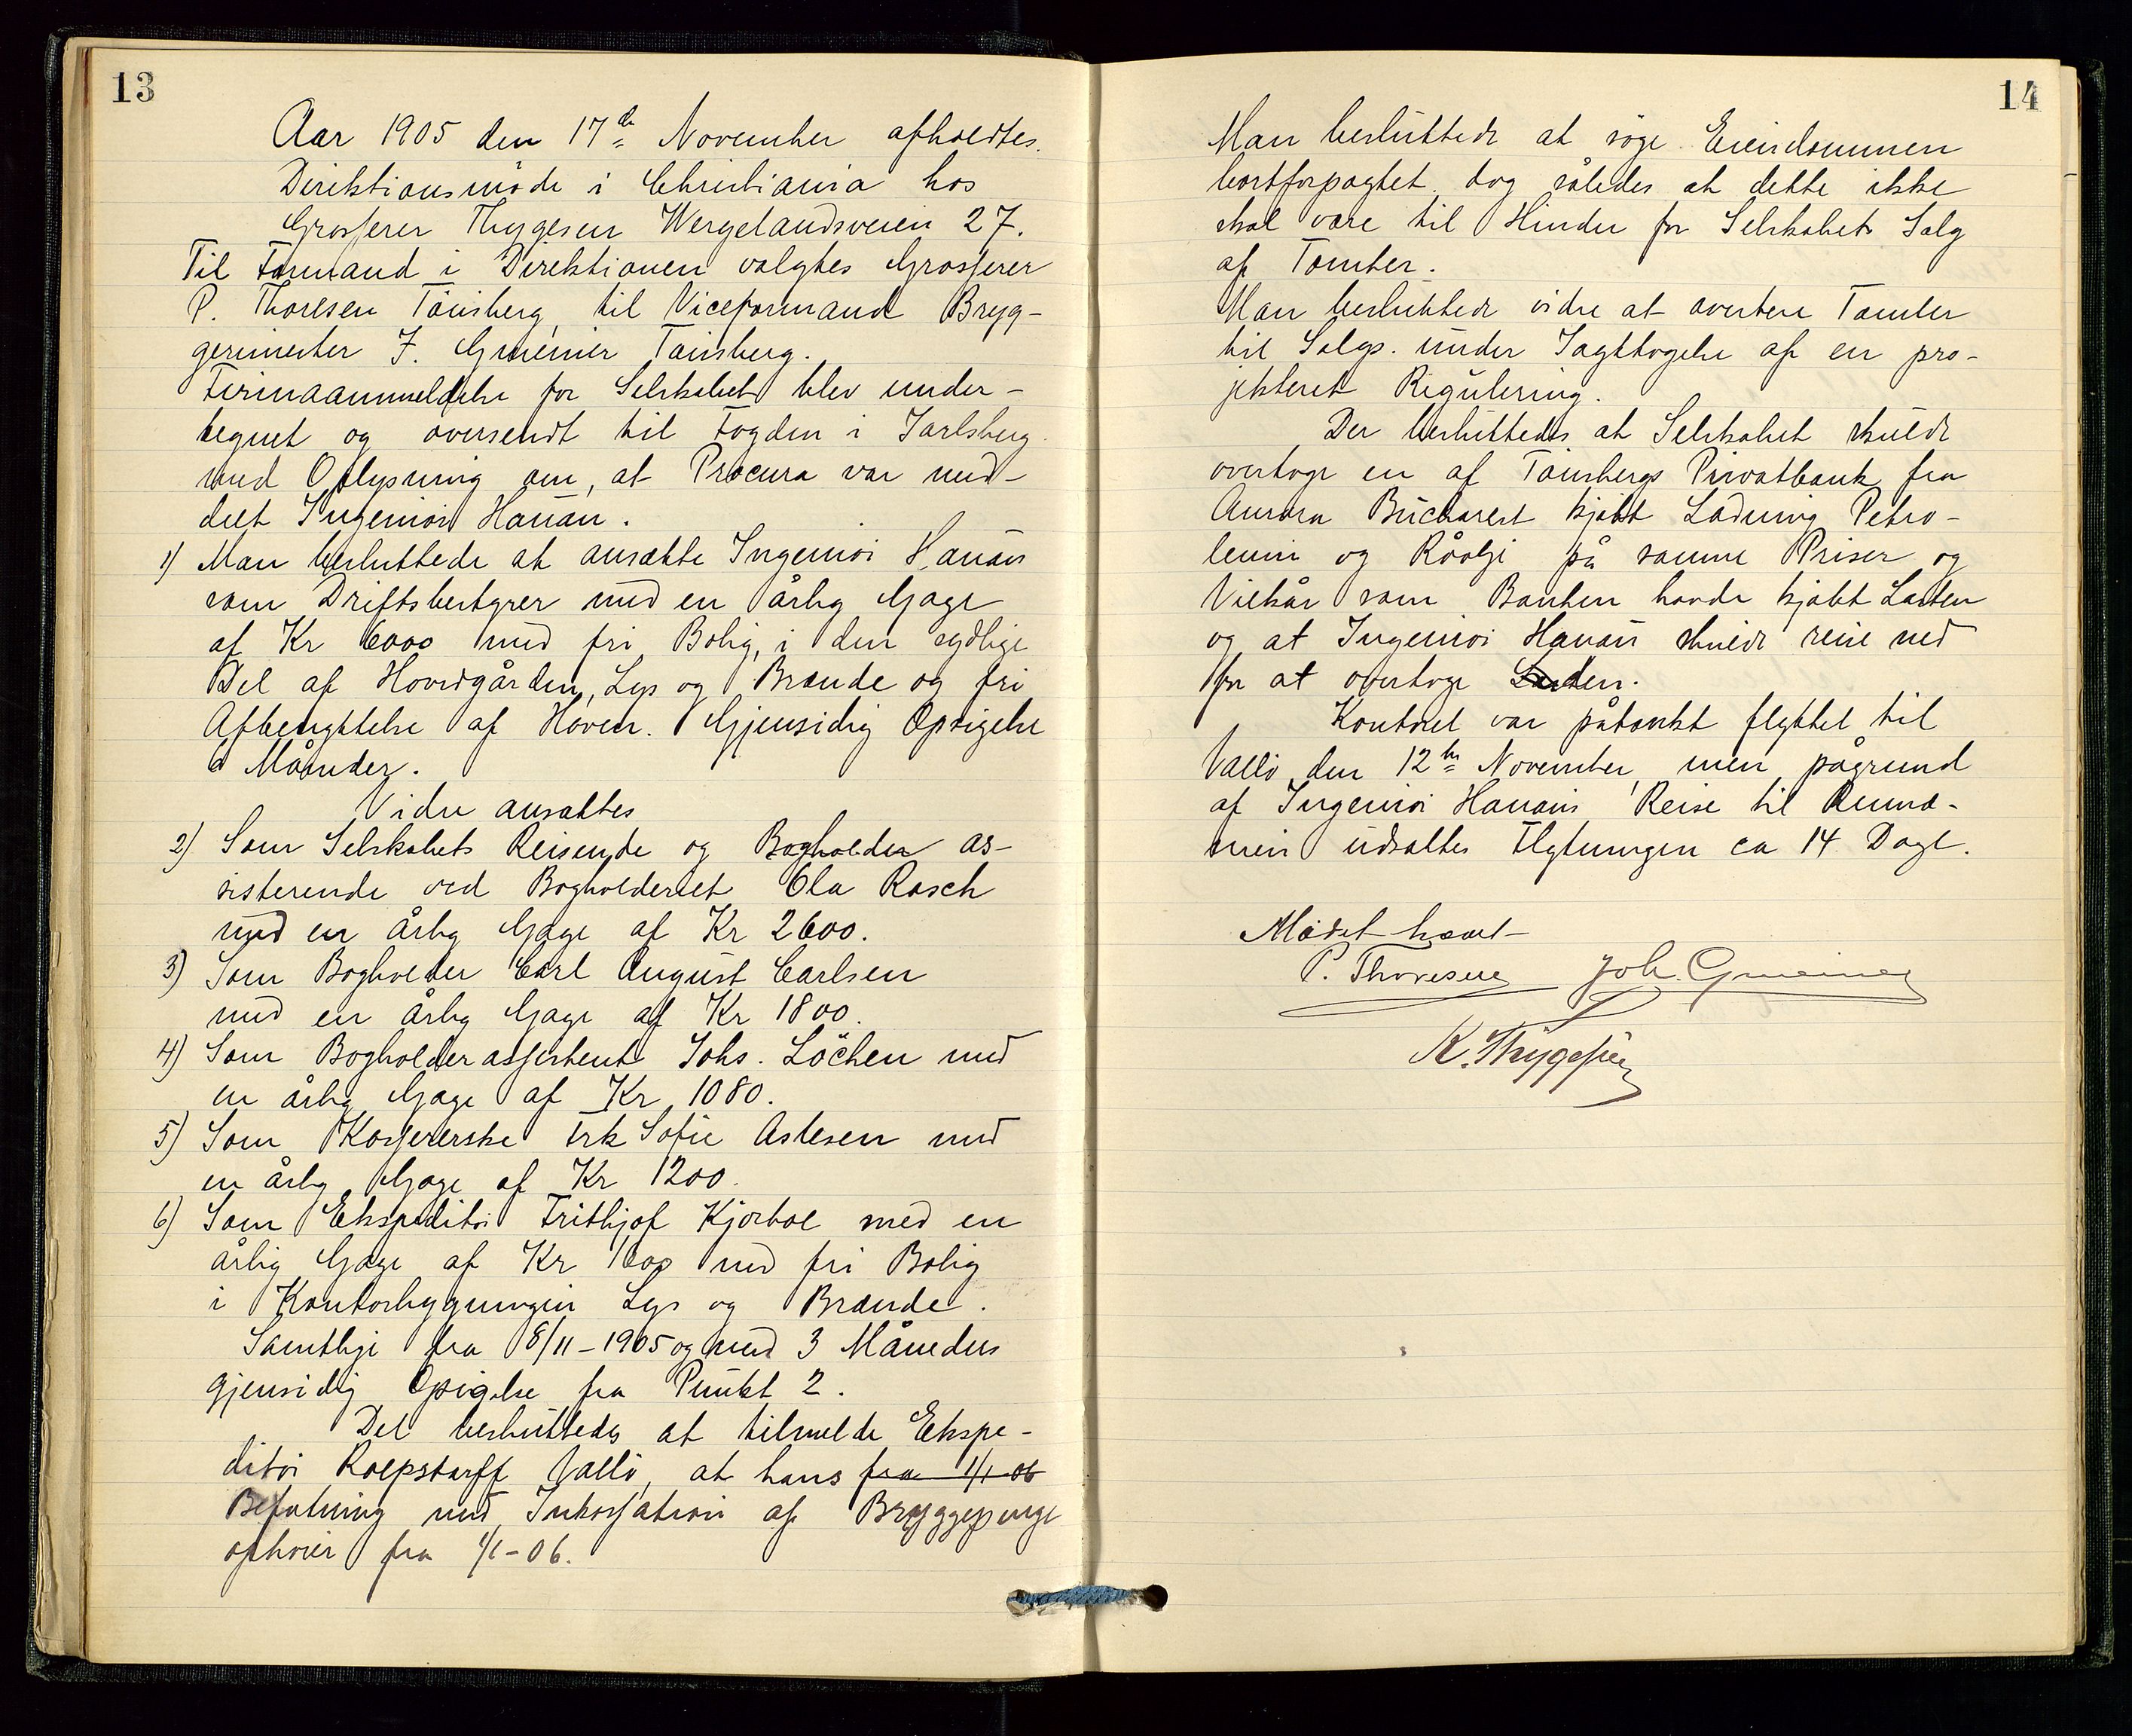 13
Aar 1905 den 17de November afholdtes
Direktionsmöde i Christiania hos
Grosserer Thygesen Wergelandsveien 27.
Til Formand i Direktionen valgtes Grosserer
P. Thoresen Tönsberg, til Viceformand Bryg-
gerimester J. Gmeiner Tönsberg.
Firmaanmeldelse for Selskabet blev under-
tegnet og oversendt til Fogden i Jarlsberg
med Oplysning om, at Procura var med-
delt Ingeniör Hanan.
1) Man besluttede at ansætte Ingeniör Hanan
som Driftsbestyrer med en årlig Gage
af Kr 6000 med fri Bolig, i den sydlige
Del af Hovedgården, Lys og Brænde og fri
Afbenyttelse af Haven. Gjensidig Opsigelse
6 Måneder.
Vidre ansattes
2) Som Selskabets Reisende og Bogholder as-
sisterende ved Bogholderiet Ola Rasch
med en årlig Gage af Kr 2600.
3) Som Bogholder Carl August Carlsen
med en årlig Gage af Kr 1800.
4) Som Bogholderassistent Johs. Löchen med
en årlig Gage af Kr 1080.
5) Som Kassererske Frk Sofie Aslesen med
en årlig Gage af Kr 1200.
6) Som Ekspeditör Frithjof Kjørboe med en
årlig Gage af Kr 1600 med fri Bolig
i Kontorbygningen Lys og Brænde.
Samtlige fra 8/11-1905 og med 3 Måneders
gjensidig Opsigelse fra Punkt 2.
Det besluttedes at tilmelde Ekspe-
ditör Roepstorff Vallö, at hans fra 1/1-06
Befatning med Inkassation af Bryggepenge
ophörer fra 1/1-06.
14
Man besluttede at söge Eiendommen
bortforpagtet dog således at dette ikke
skal være til Hinder for Selskabets Salg
af Tomter.
Man besluttede vidre at avertere Tomter
til Salgs under Iagttagelse af en pro-
jekteret Regulering.
Der besluttedes at Selskabet skulde
overtage en af Tönsbergs Privatbank fra
Aurora Bucharest kjöbt Ladning Petro-
leum og Råolje på samme Priser og
Vilkår som Banken havde kjöbt Lasten
og at Ingeniör Hanan skulde reise ned
for at overtage Lasten.
Kontoret var påtænkt flyttet til
Vallö den 12te November, men pågrund
af Ingeniör Hanans Reise til Rumæ-
nien udsattes Flytningen ca 14 Dage.
Mödet hævet
P. Thoresen Joh. Gmeiner
K. Thygesen